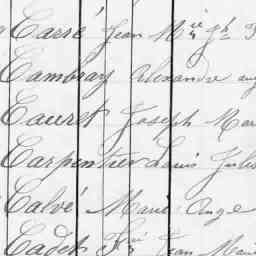 Carré Jean Mie Jh
Cambray Alexandre aug
Cauret Joseph Mar
Carpentier Louis Jules
Calvé Marie Ange
Cadet Fois Jean Marie